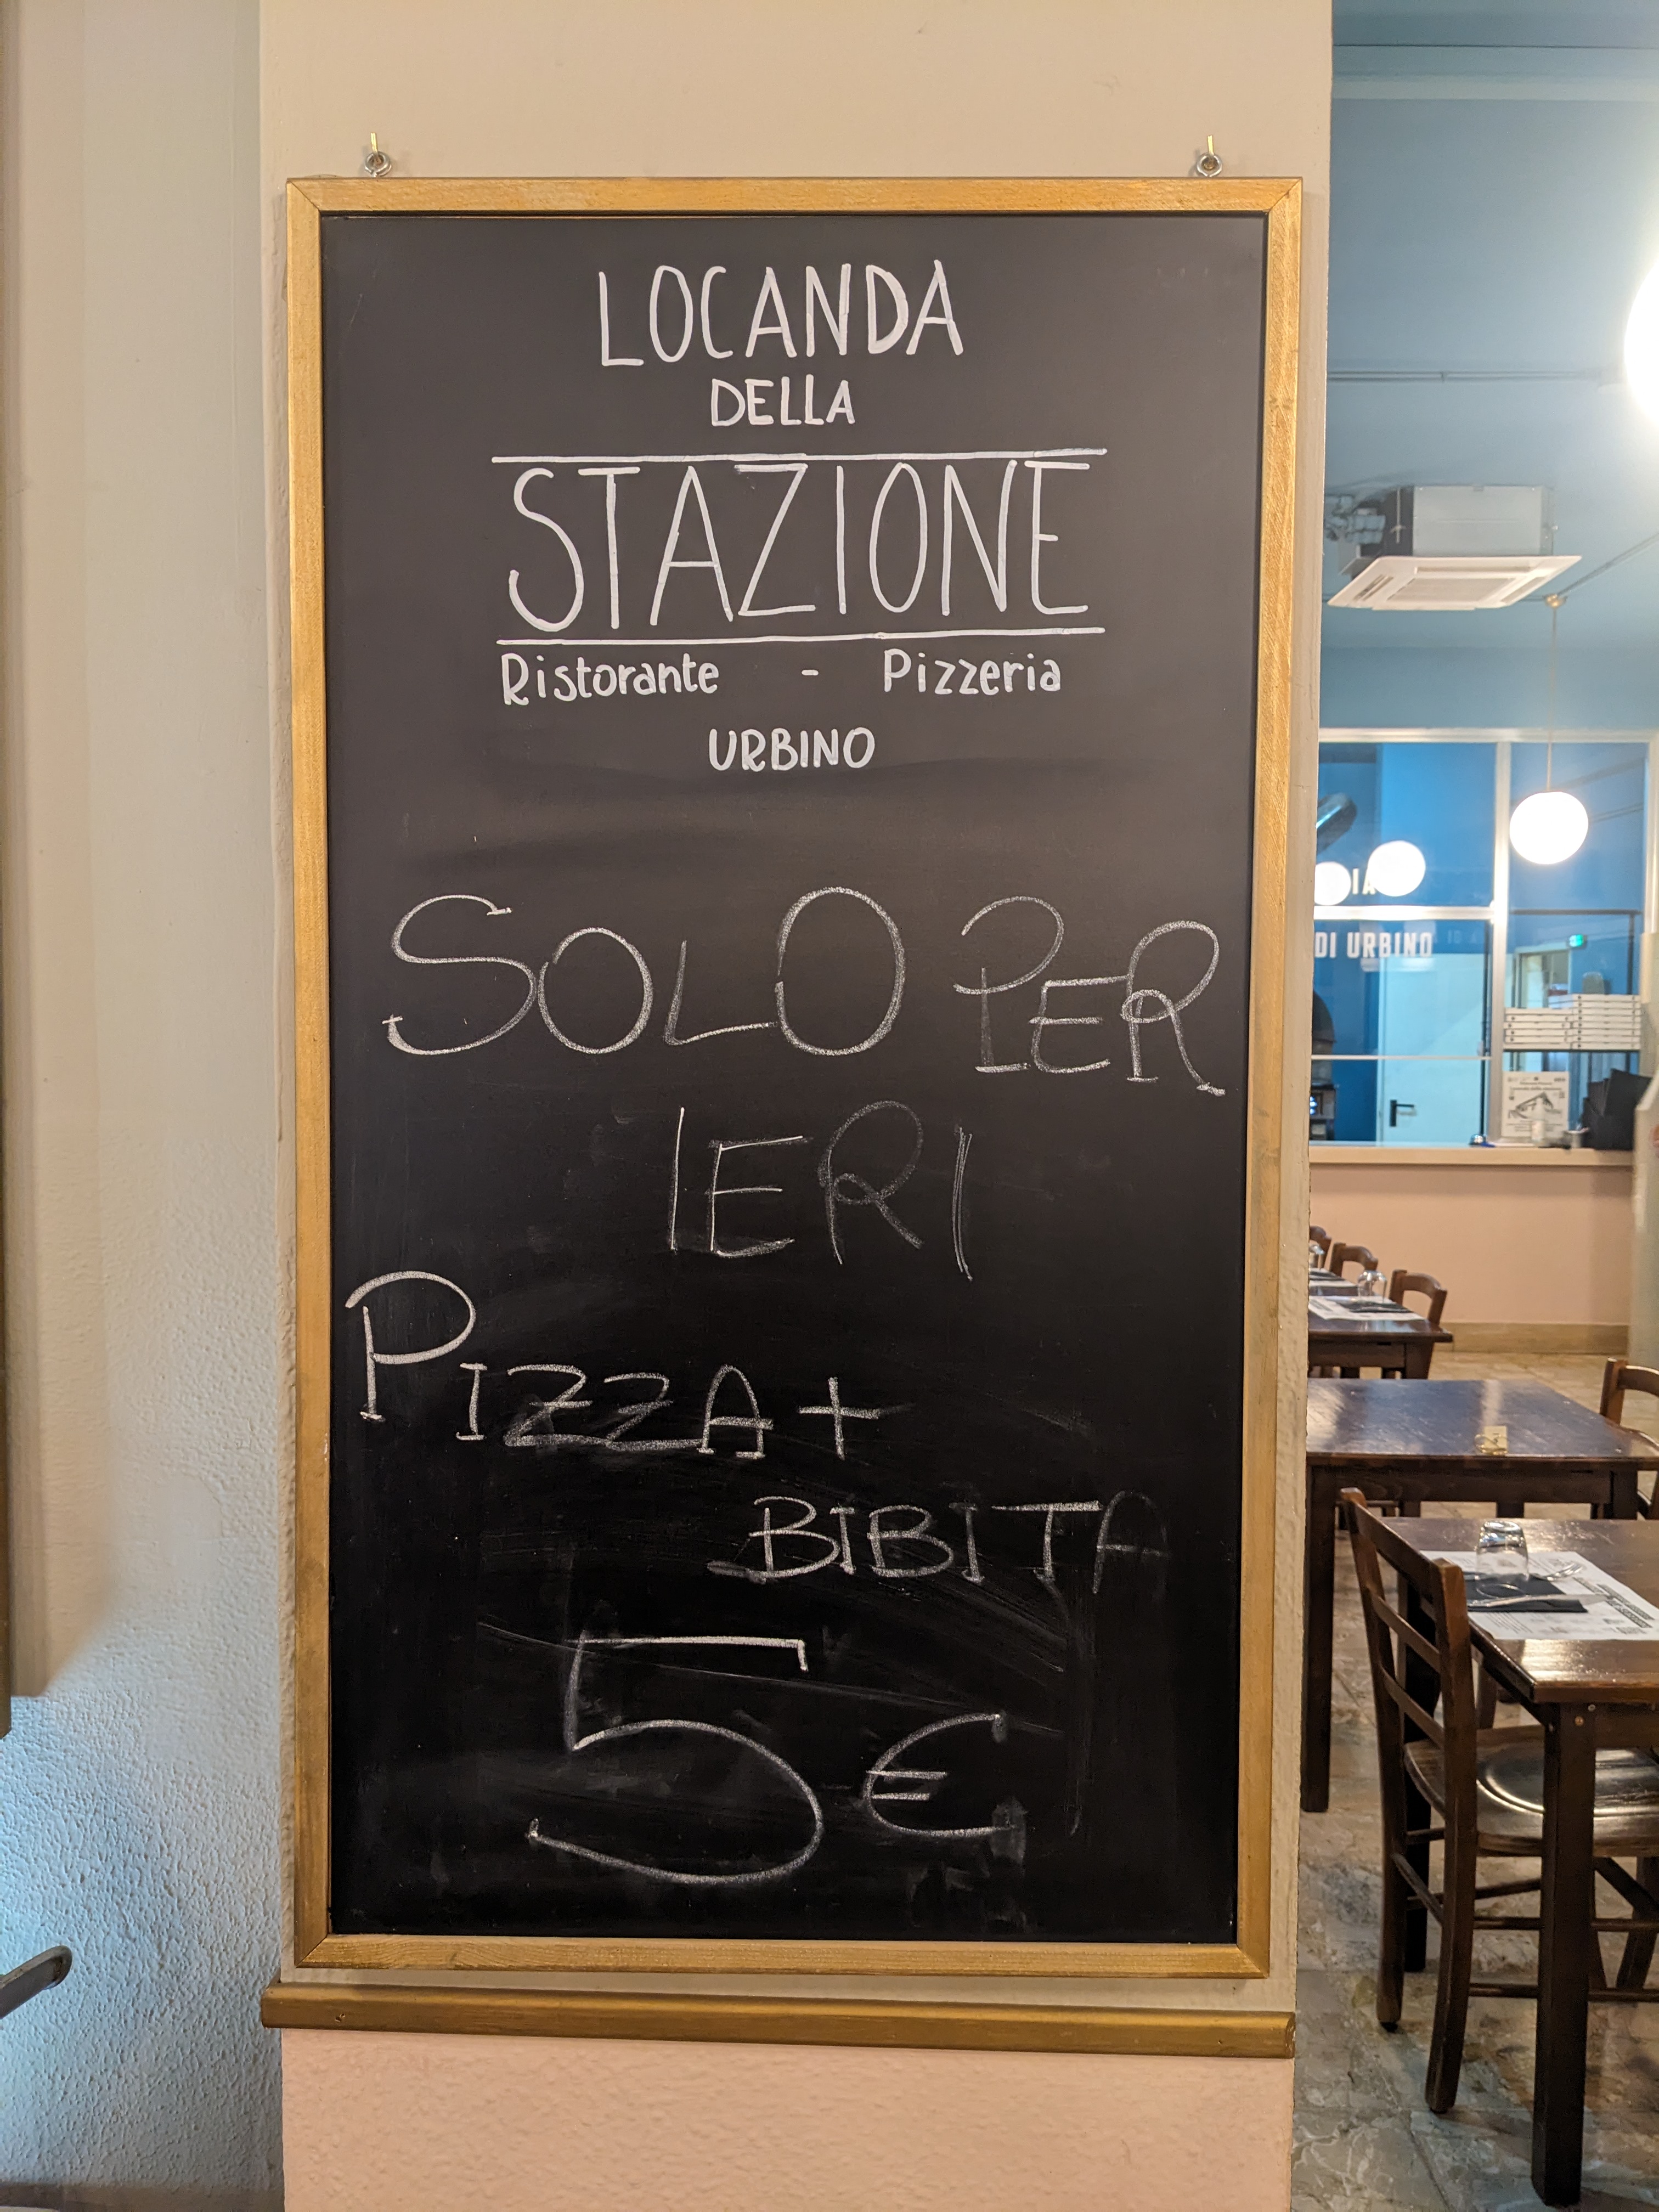 LOCANDA
DELLA
STAZIONE
Ristorante - Pizzeria
URBINO
SOLO PER
IERI
PIZZA +
BIBITA
5 €
DI URBINO